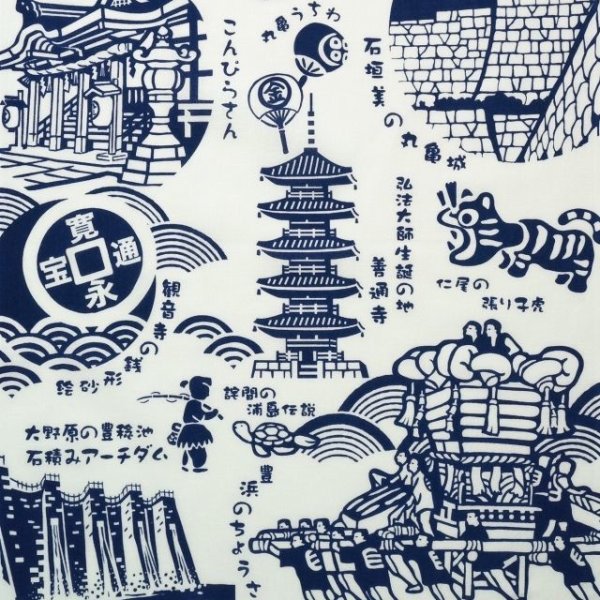 こんぴらさん
丸亀うちわ
金
石垣美の丸亀城
弘法大師生誕の地
善通寺
仁尾の
張り子虎
寛永通宝
観音寺の銭
形砂絵
詫間の
浦島伝説
大野原の豊稔池
石積みアーチダム
豊浜のちょうさ